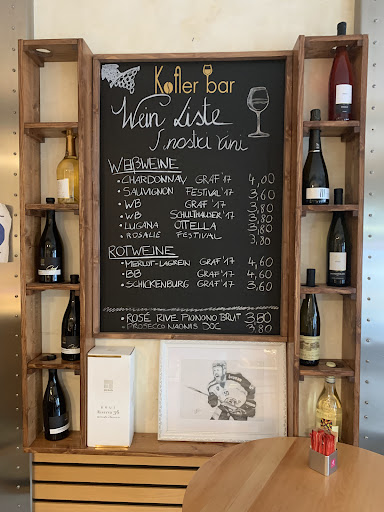 Kofler bar
Wein Liste
I nostri Vini
WEIßWEINE
• CHARDONNAY GRAF '17 4,00
• SAUVIGNON FESTIVAL '17 3,60
• WB GRAF '17 3,80
• WB SCHULTHAUSER '17 3,80
• LUGANA OTELLA 3,80
• ROSALIE FESTIVAL 3,80
ROTWEINE
• MERLOT-LAGREIN GRAF '17 4,60
• BB GRAF '17 4,60
• SCHICKENBURG GRAF '17 3,60
• ROSÉ RIVE BRUT 3,80
• PROSECCO NAONIS DOC 3,80